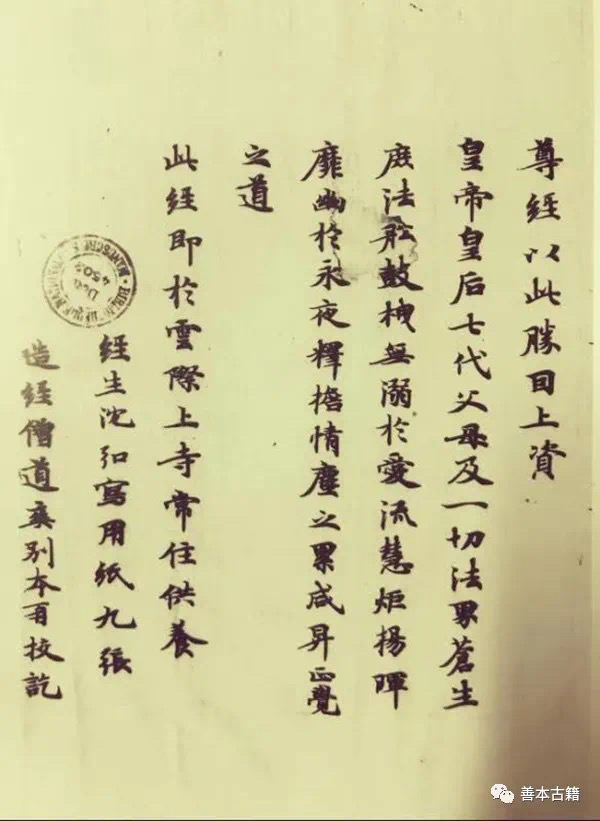 尊經以此勝因上資
皇帝皇后七代父母及一切法界蒼生
庶法舩鼓栧無溺於愛流慧炬揚暉
靡幽於永夜釋擔情塵之累咸昇正覺
之道
此經即於雲際上寺常住供養
經生沈弘寫用紙九張
造經僧道爽別本再校訖
善本古籍